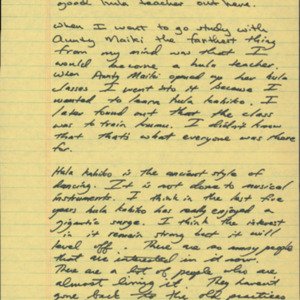 good hula teacher out here.
When I went to go study with
Aunty Maiki the farthest thing
from my mind was that I
would become a hula teacher.
When Aunty Maiki opened up her hula
classes I went into it because I
wanted to learn hula kahiko. I
later found out that the class
was to train kumu. I didn't know
that that's what everyone was there
for.
Hula kahiko is the ancient style of
dancing. It is not done to musical
instruments. I think in the last five
years hula kahiko has really enjoyed a
gigantic surge. I think the interest
in it remains strong but it will
level off. There are so many people
that are interested in it now.
There are a lot of people who are
almost living it. They haven't
gone back to the old practices